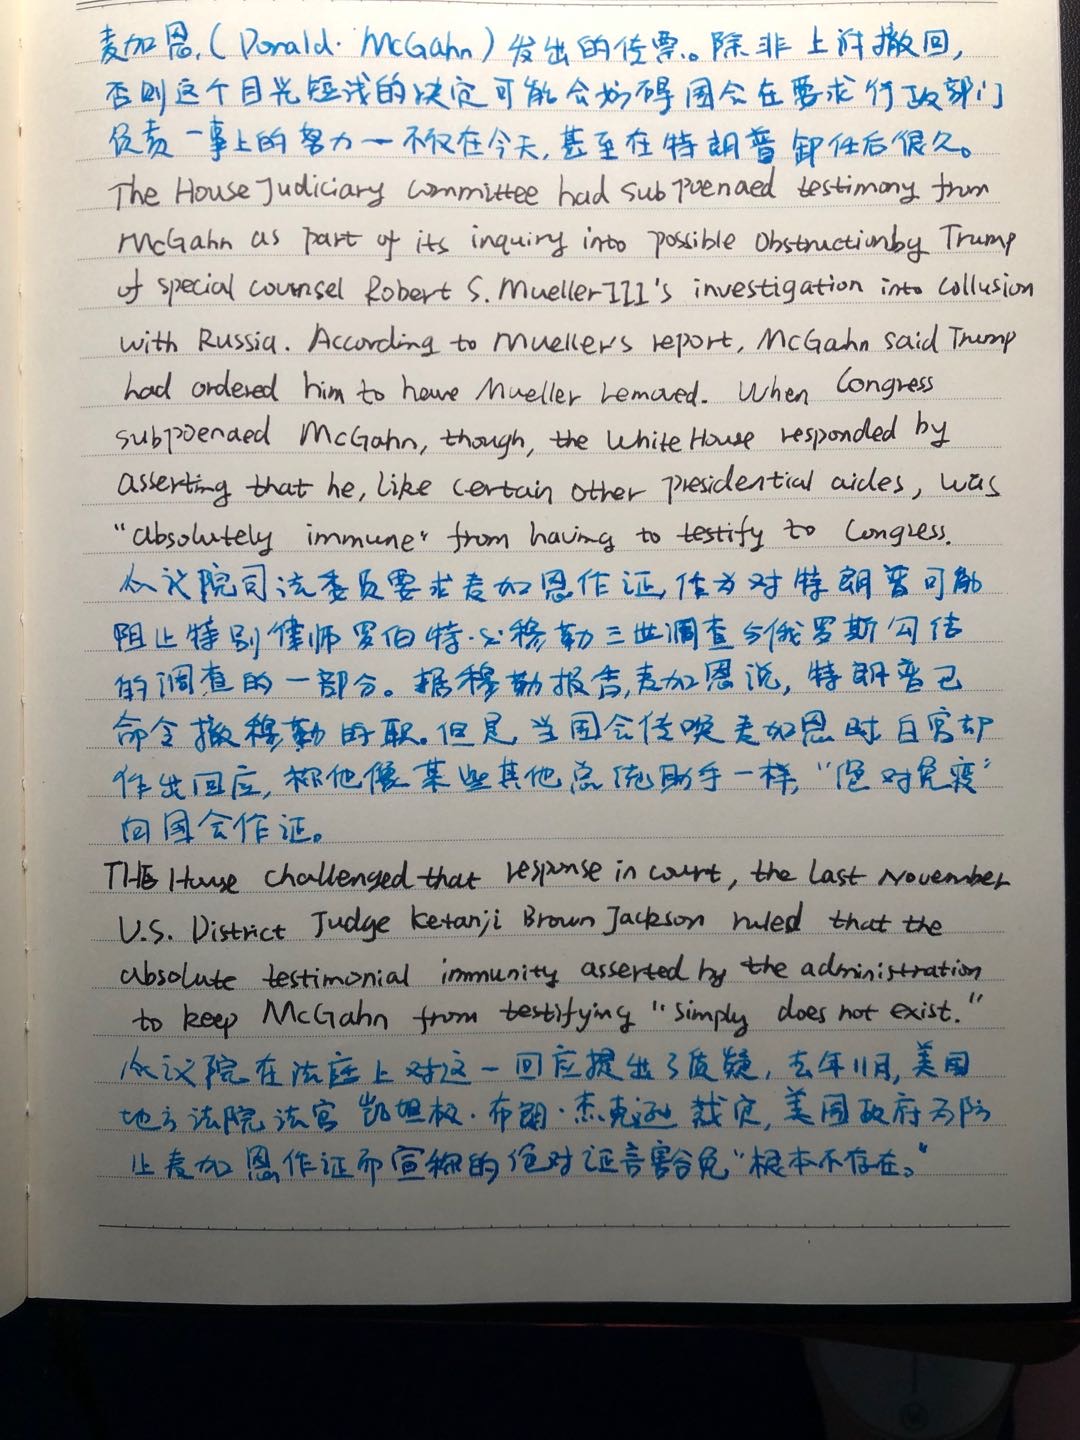 麦加恩,(Donald·McGahn)发出的传票。除非上诉撤回,
否则这个目光短浅的决定可能会妨碍国会在要求行政部门
负责一事上的努力—不仅在今天,甚至在特朗普卸任后很久。
The House Judiciary Committee had subpoenaed testimony from
McGahn as part of its inquiry into possible Obstruction by Trump
of special counsel Robert S. Mueller III's investigation into collusion
with Russia. According to Mueller's report, McGahn said Trump
had ordered him to have Mueller removed. When Congress
subpoenaed McGahn, though, the White House responded by
asserting that he, like certain other presidential aides, was
"absolutely immune" from having to testify to Congress.
众议院司法委员要求麦加恩作证,作为对特朗普可能
阻止特别律师罗伯特·S·穆勒三世调查与俄罗斯勾结
的调查的一部分。据穆勒报告,麦加恩说,特朗普已
命令撤穆勒的职。但是当国会传唤麦加恩时白宫却
作出回应,称他像某些其他总统助手一样,"绝对免疫"
向国会作证。
THE House challenged that response in court, the last November
U.S. District Judge Ketanji Brown Jackson ruled that the
absolute testimonial immunity asserted by the administration
to keep McGahn from testifying "simply does not exist."
众议院在法庭上对这一回应提出了质疑,去年11月,美国
地方法院法官凯坦极·布朗·杰克逊裁定,美国政府为防
止麦加恩作证而宣称的绝对证言豁免"根本不存在。"